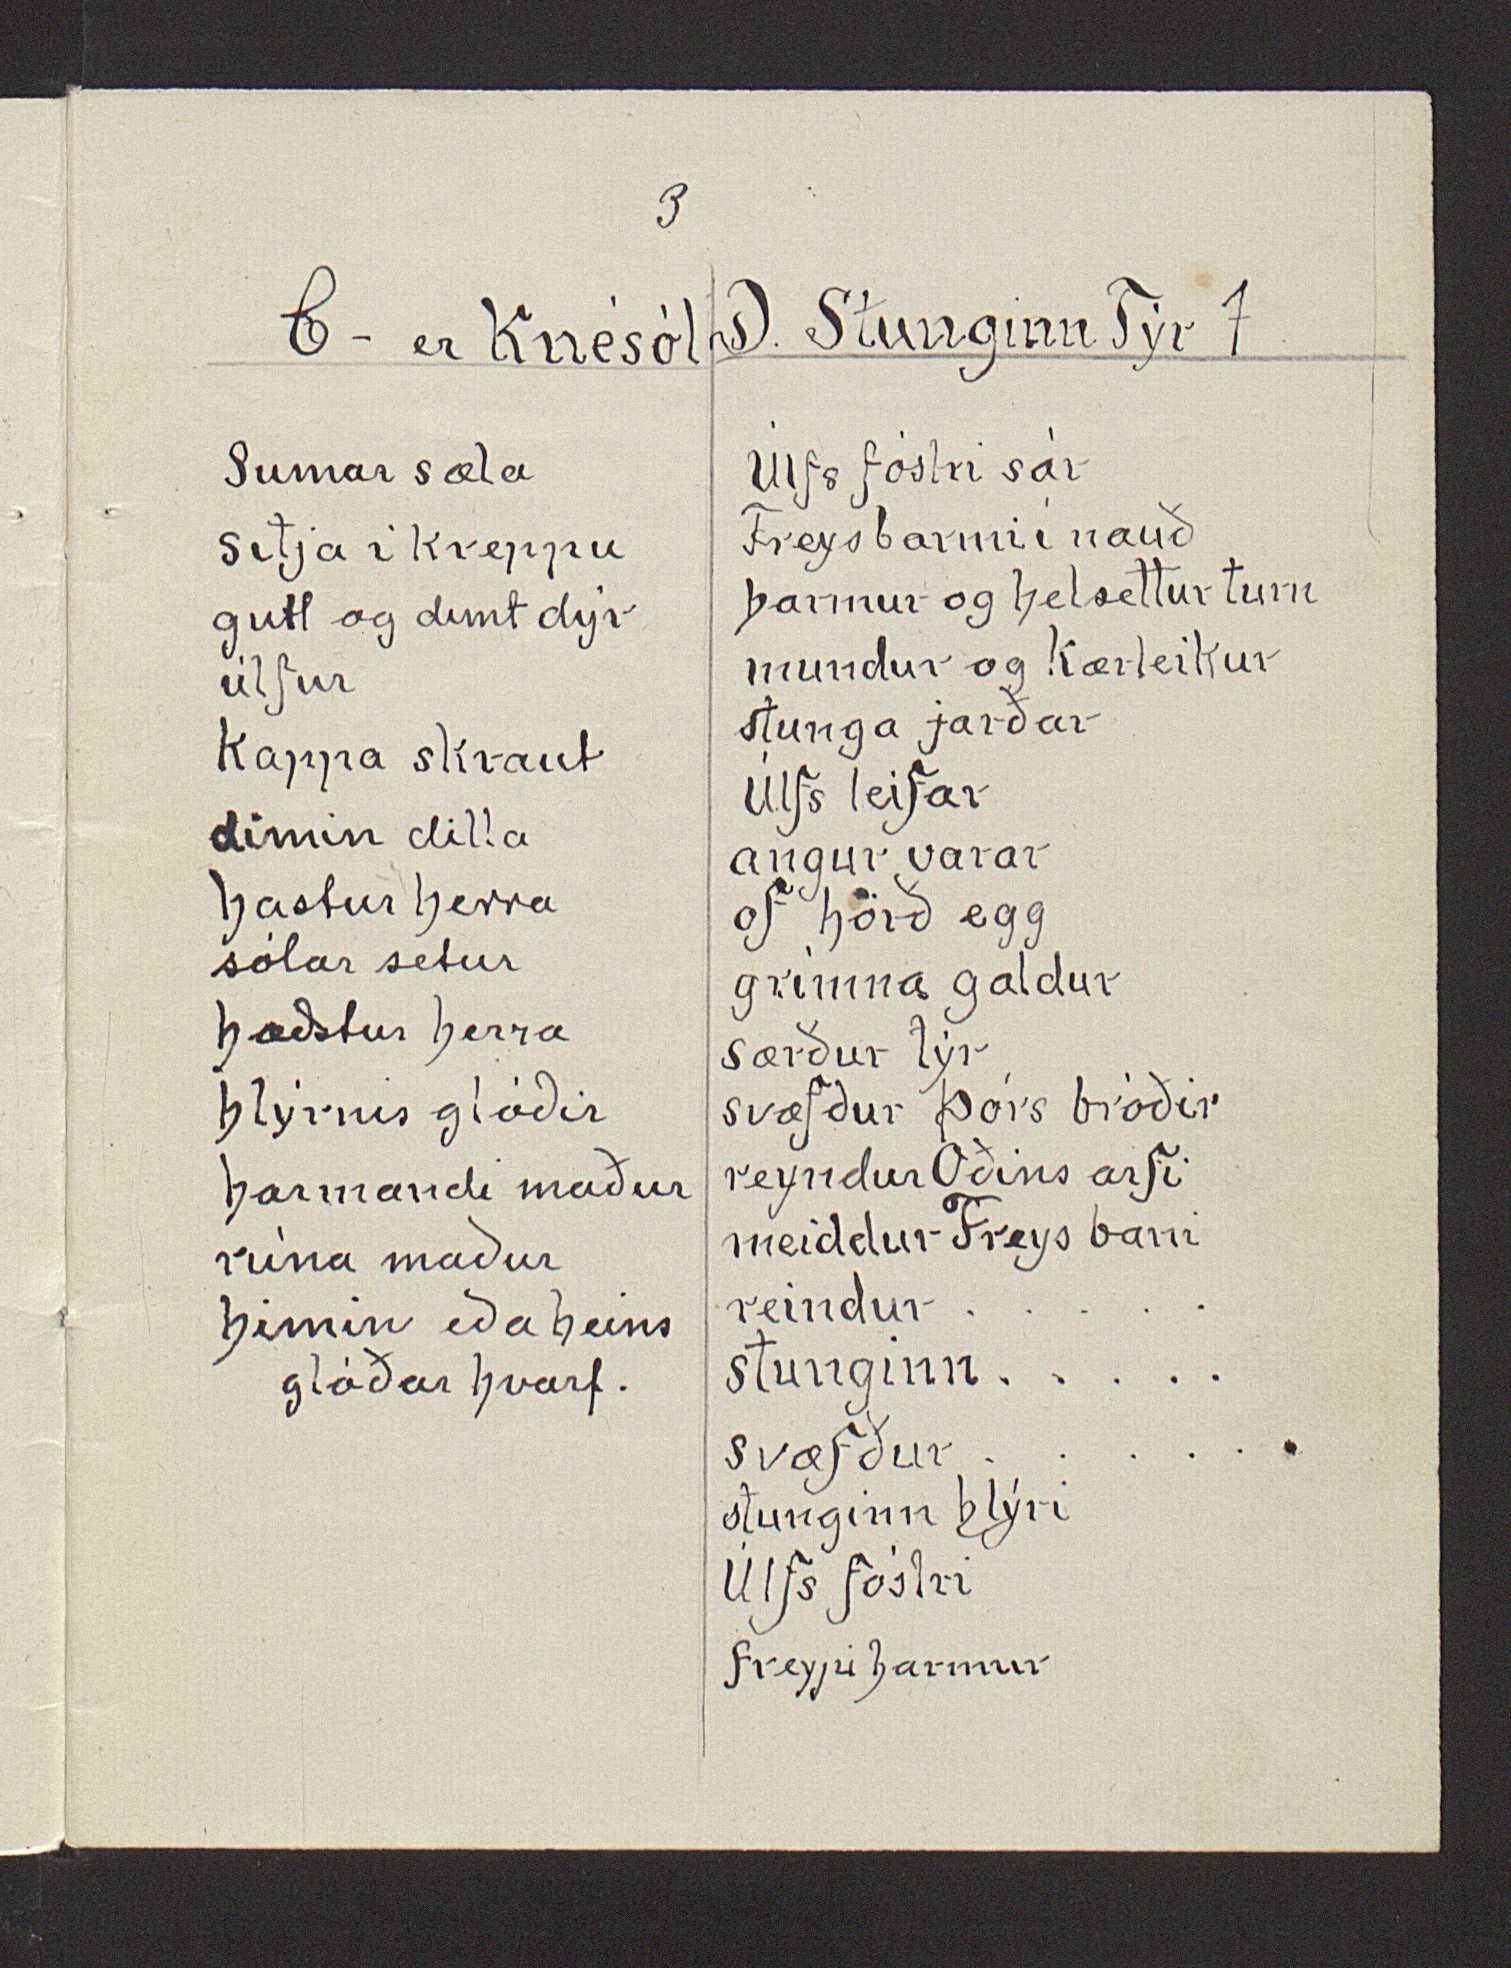 3
C - er Knésól
Sumar sæla
setja i kreppu
gutl og dimt dýr
úlfur
Kappa skraut
dimin dilla
hastur herra
sólar setur
hæðstur herra
hlýrnis glóðir
harmandi maður
rúna maður
himin eða heins
glóðar hvarf.
D. Stunginn Týr
Úlfs fóstri sár
Freys barmi í nauð
þarmur og helsettur turn
mundur og Kærleikur
stunga jarðar
Úlfs leifar
angur varar
of hörð egg
grímna galdur
særður týr
svæfður Þórs bróðir
reyndur Óðins arfi
meiddur Freys barni
reindur . . . . .
stunginn . . . . .
svæfður . . . . . .
stunginn hlýri
Úlfs fóstri
freypi harmur